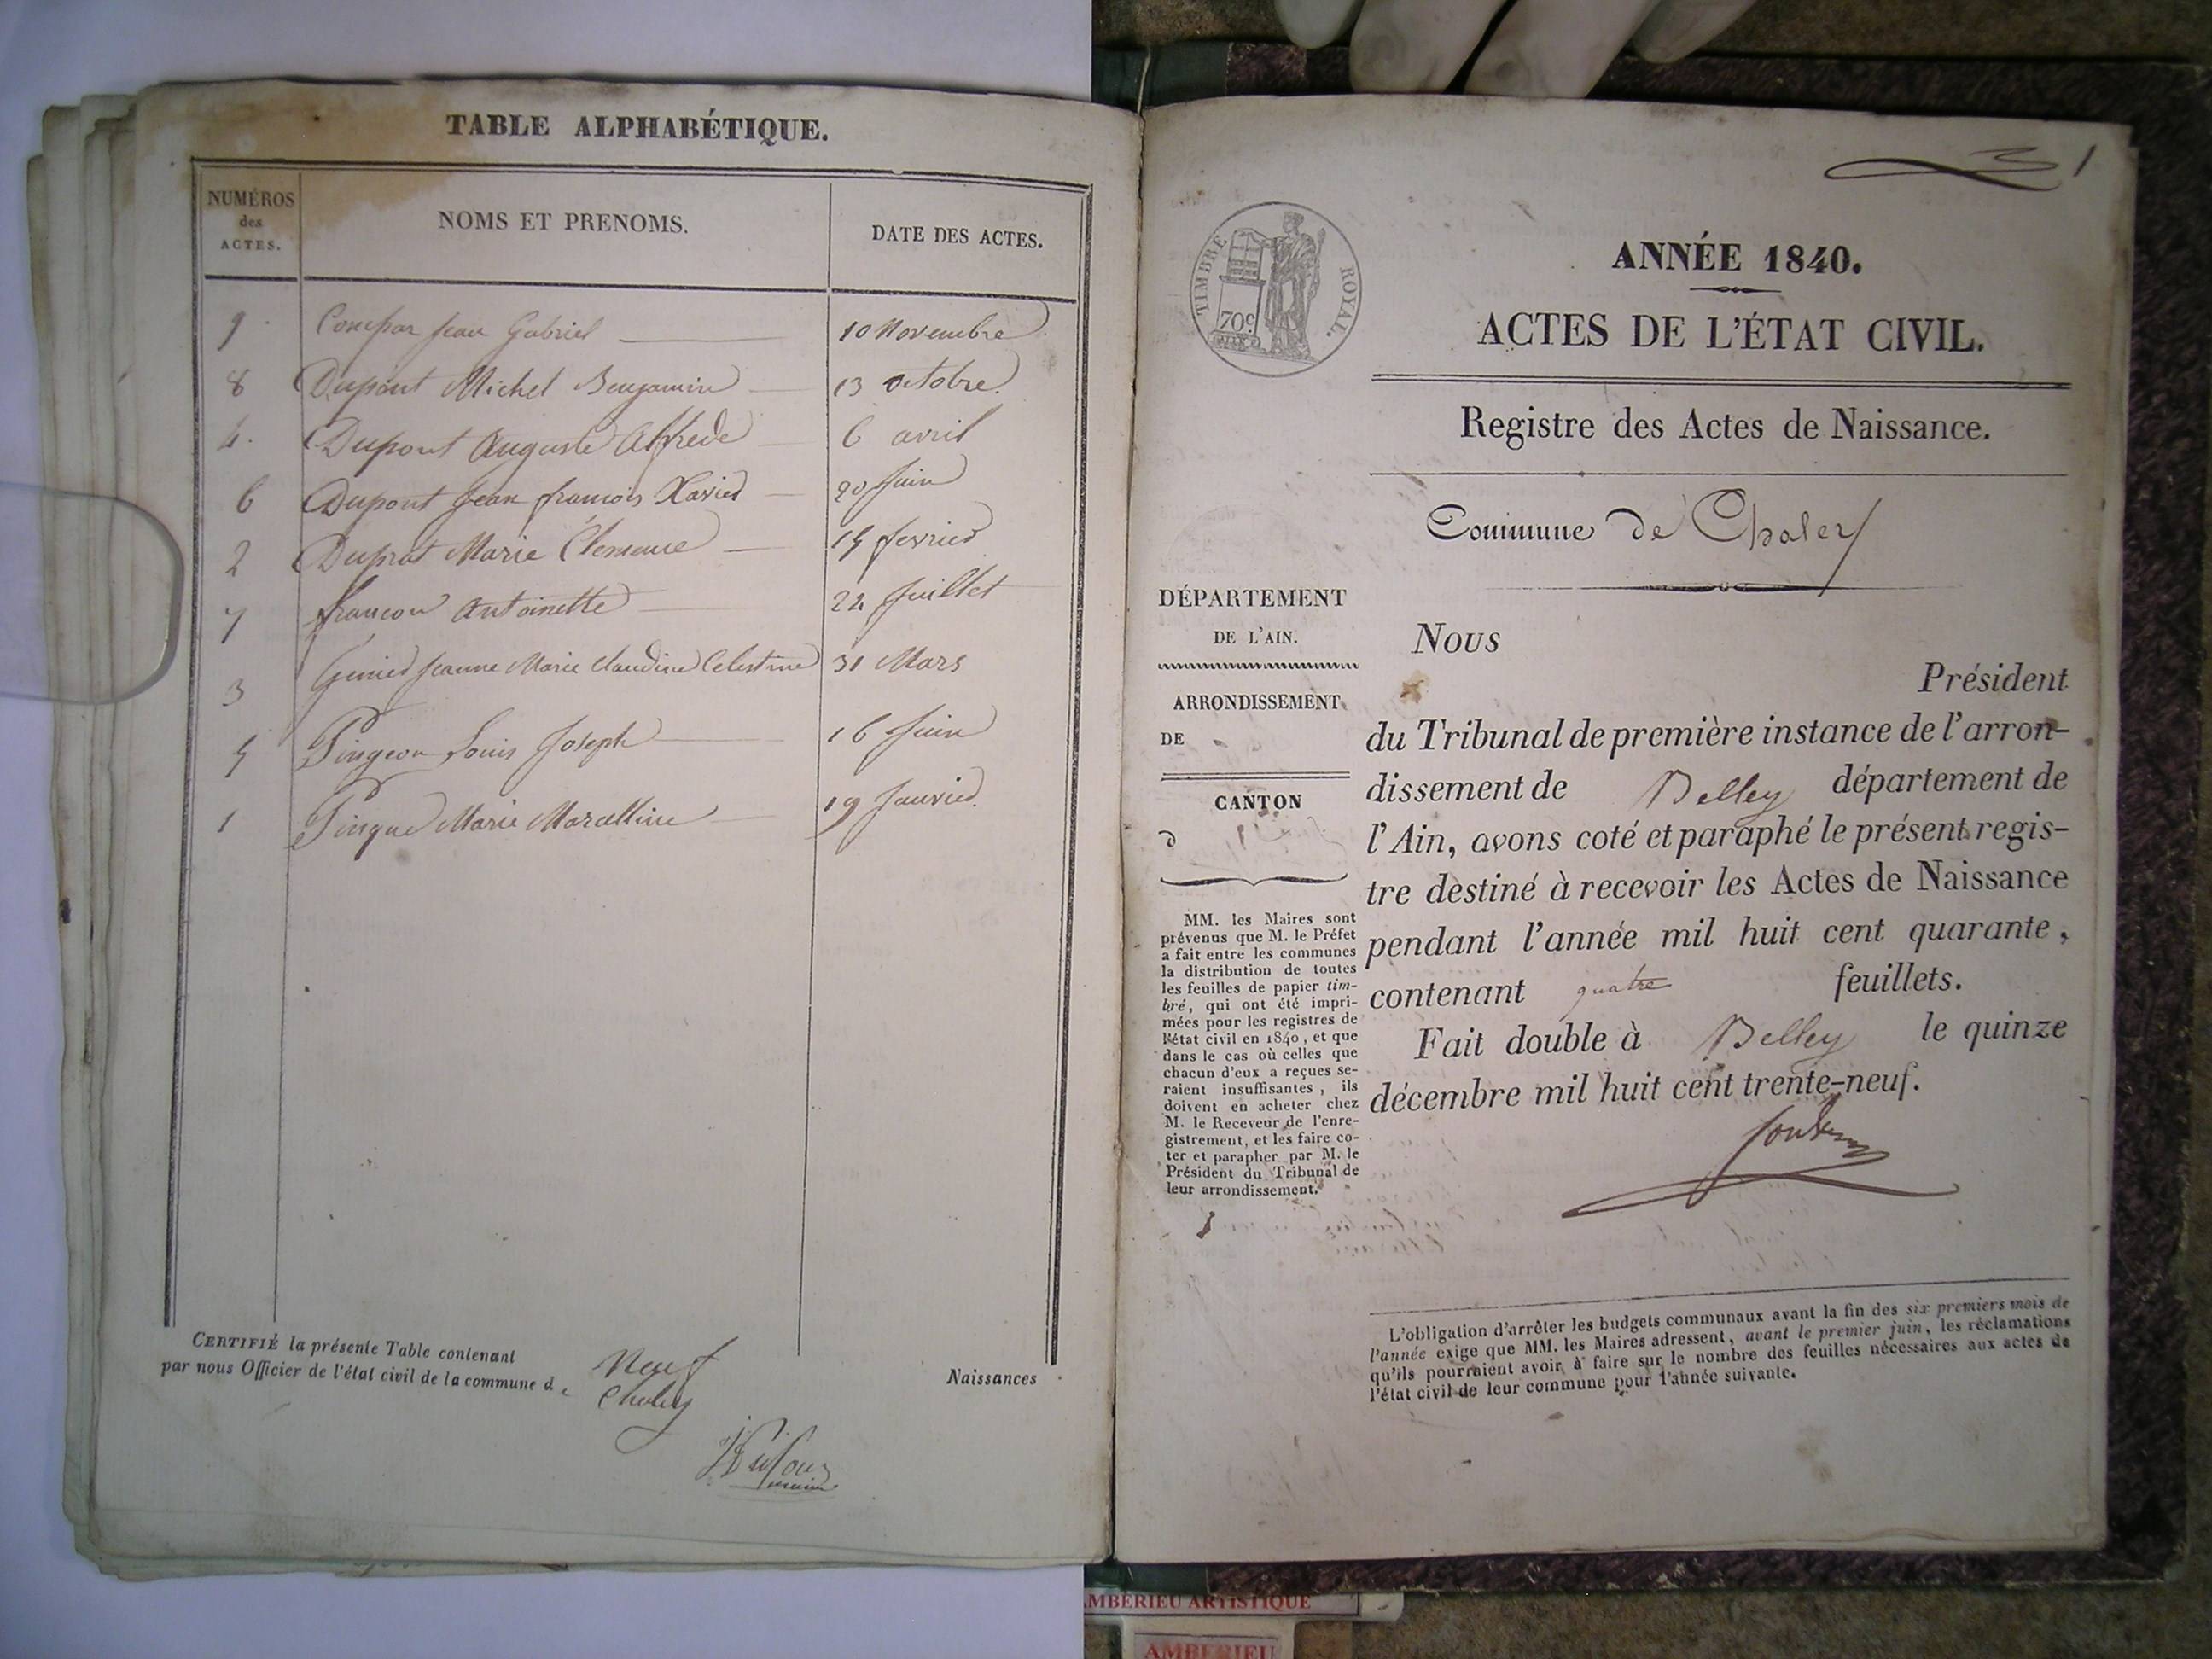 TABLE ALPHABÉTIQUE.
NUMÉROS des ACTES. NOMS ET PRENOMS. DATE DES ACTES.
9 Compar Jean Gabriel 10 Novembre
8 Dupont Michel Benjamin 13 octobre
4. Dupont Auguste Alfrede 6 avril
6 Dupont Jean françois Xavier 20 Juin
2 Duprat Marie Clemence 15 fevrier
7 françon Antoinette 22 Juillet
3 Genier Jeanne Marie Claudine Celestine 31 Mars
5 Pingeon Louis Joseph 16 Juin
1 Pingue Marie Marcelline 19 Janvier
CERTIFIÉ la présente Table contenant Neuf Naissances
par nous Officier de l'état civil de la commune de Chaley
maire
1
TIMBRE ROYAL.
70c
ANNÉE 1840.
ACTES DE L'ÉTAT CIVIL.
Registre des Actes de Naissance.
Commune de Chaley
DÉPARTEMENT
DE L'AIN.
ARRONDISSEMENT
DE
CANTON
d
MM. les Maires sont
prévenus que M. le Préfet
a fait entre les communes
la distribution de toutes
les feuilles de papier tim-
bré, qui ont été impri-
mées pour les registres de
l'état civil en 1840, et que
dans le cas où celles que
chacun d'eux a reçues se-
raient insuffisantes, ils
doivent en acheter chez
M. le Receveur de l'enre-
gistrement, et les faire co-
ter et parapher par M. le
Président du Tribunal de
leur arrondissement.
Nous
Président
du Tribunal de première instance de l'arron-
dissement de Belley département de
l'Ain, avons coté et paraphé le présent regis-
tre destiné à recevoir les Actes de Naissance
pendant l'année mil huit cent quarante,
contenant quatre feuillets.
Fait double à Belley le quinze
décembre mil huit cent trente-neuf.
L'obligation d'arrêter les budgets communaux avant la fin des six premiers mois de
l'année exige que MM. les Maires adressent, avant le premier juin, les réclamations
qu'ils pourraient avoir à faire sur le nombre des feuilles nécessaires aux actes de
l'état civil de leur commune pour l'année suivante.
AMBÉRIEU ARTISTIQUE
AMBERIEU